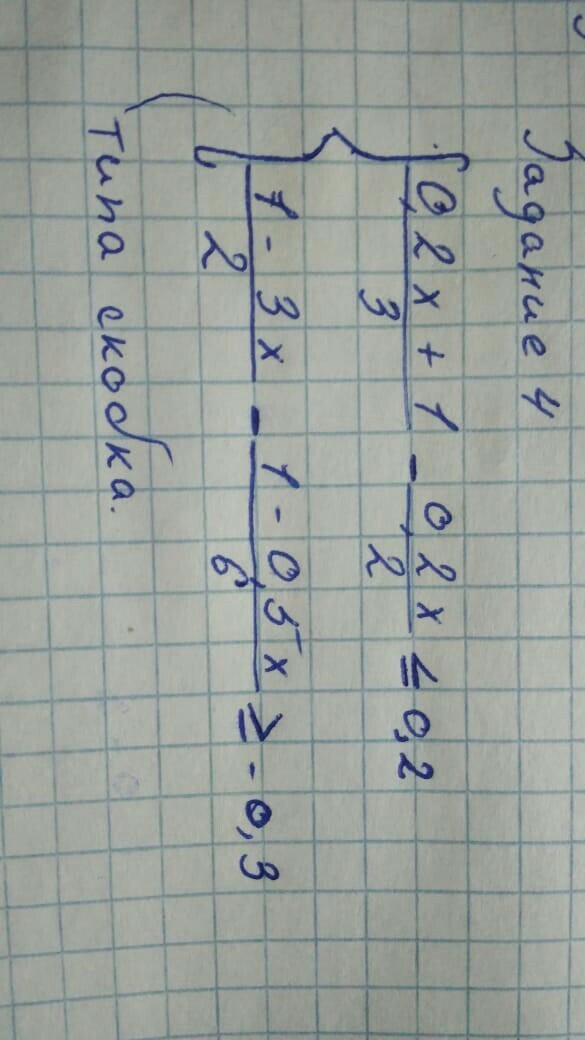 Задание 4
{ (0,2x + 1)/3 - (0,2x)/2 ≤ 0,2
(1 - 3x)/2 - (1 - 0,5x)/6 ≥ -0,3
типа скобка.